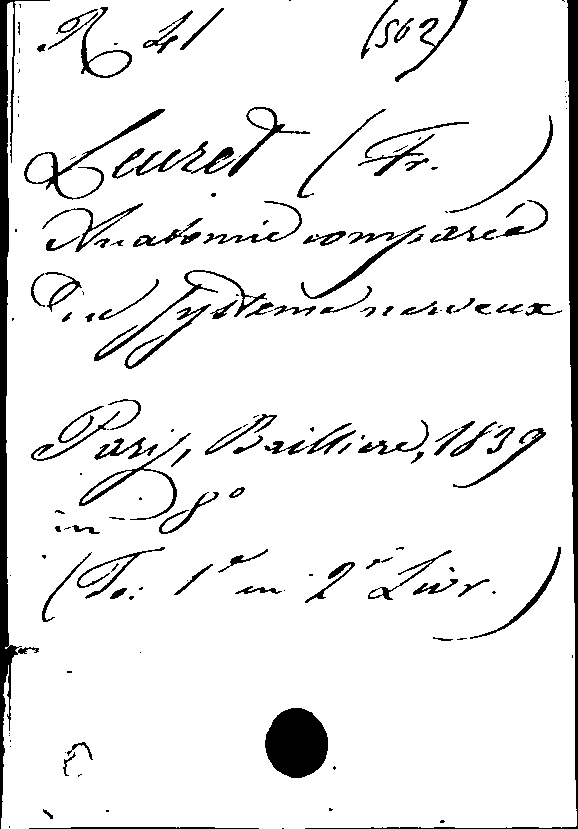 R. 41 (502)
Leuret (Fr. )
Anatomie comparée
du système nerveux
Paris, Baillière, 1839
in 8°
(To: 1r en 2r Livr. )